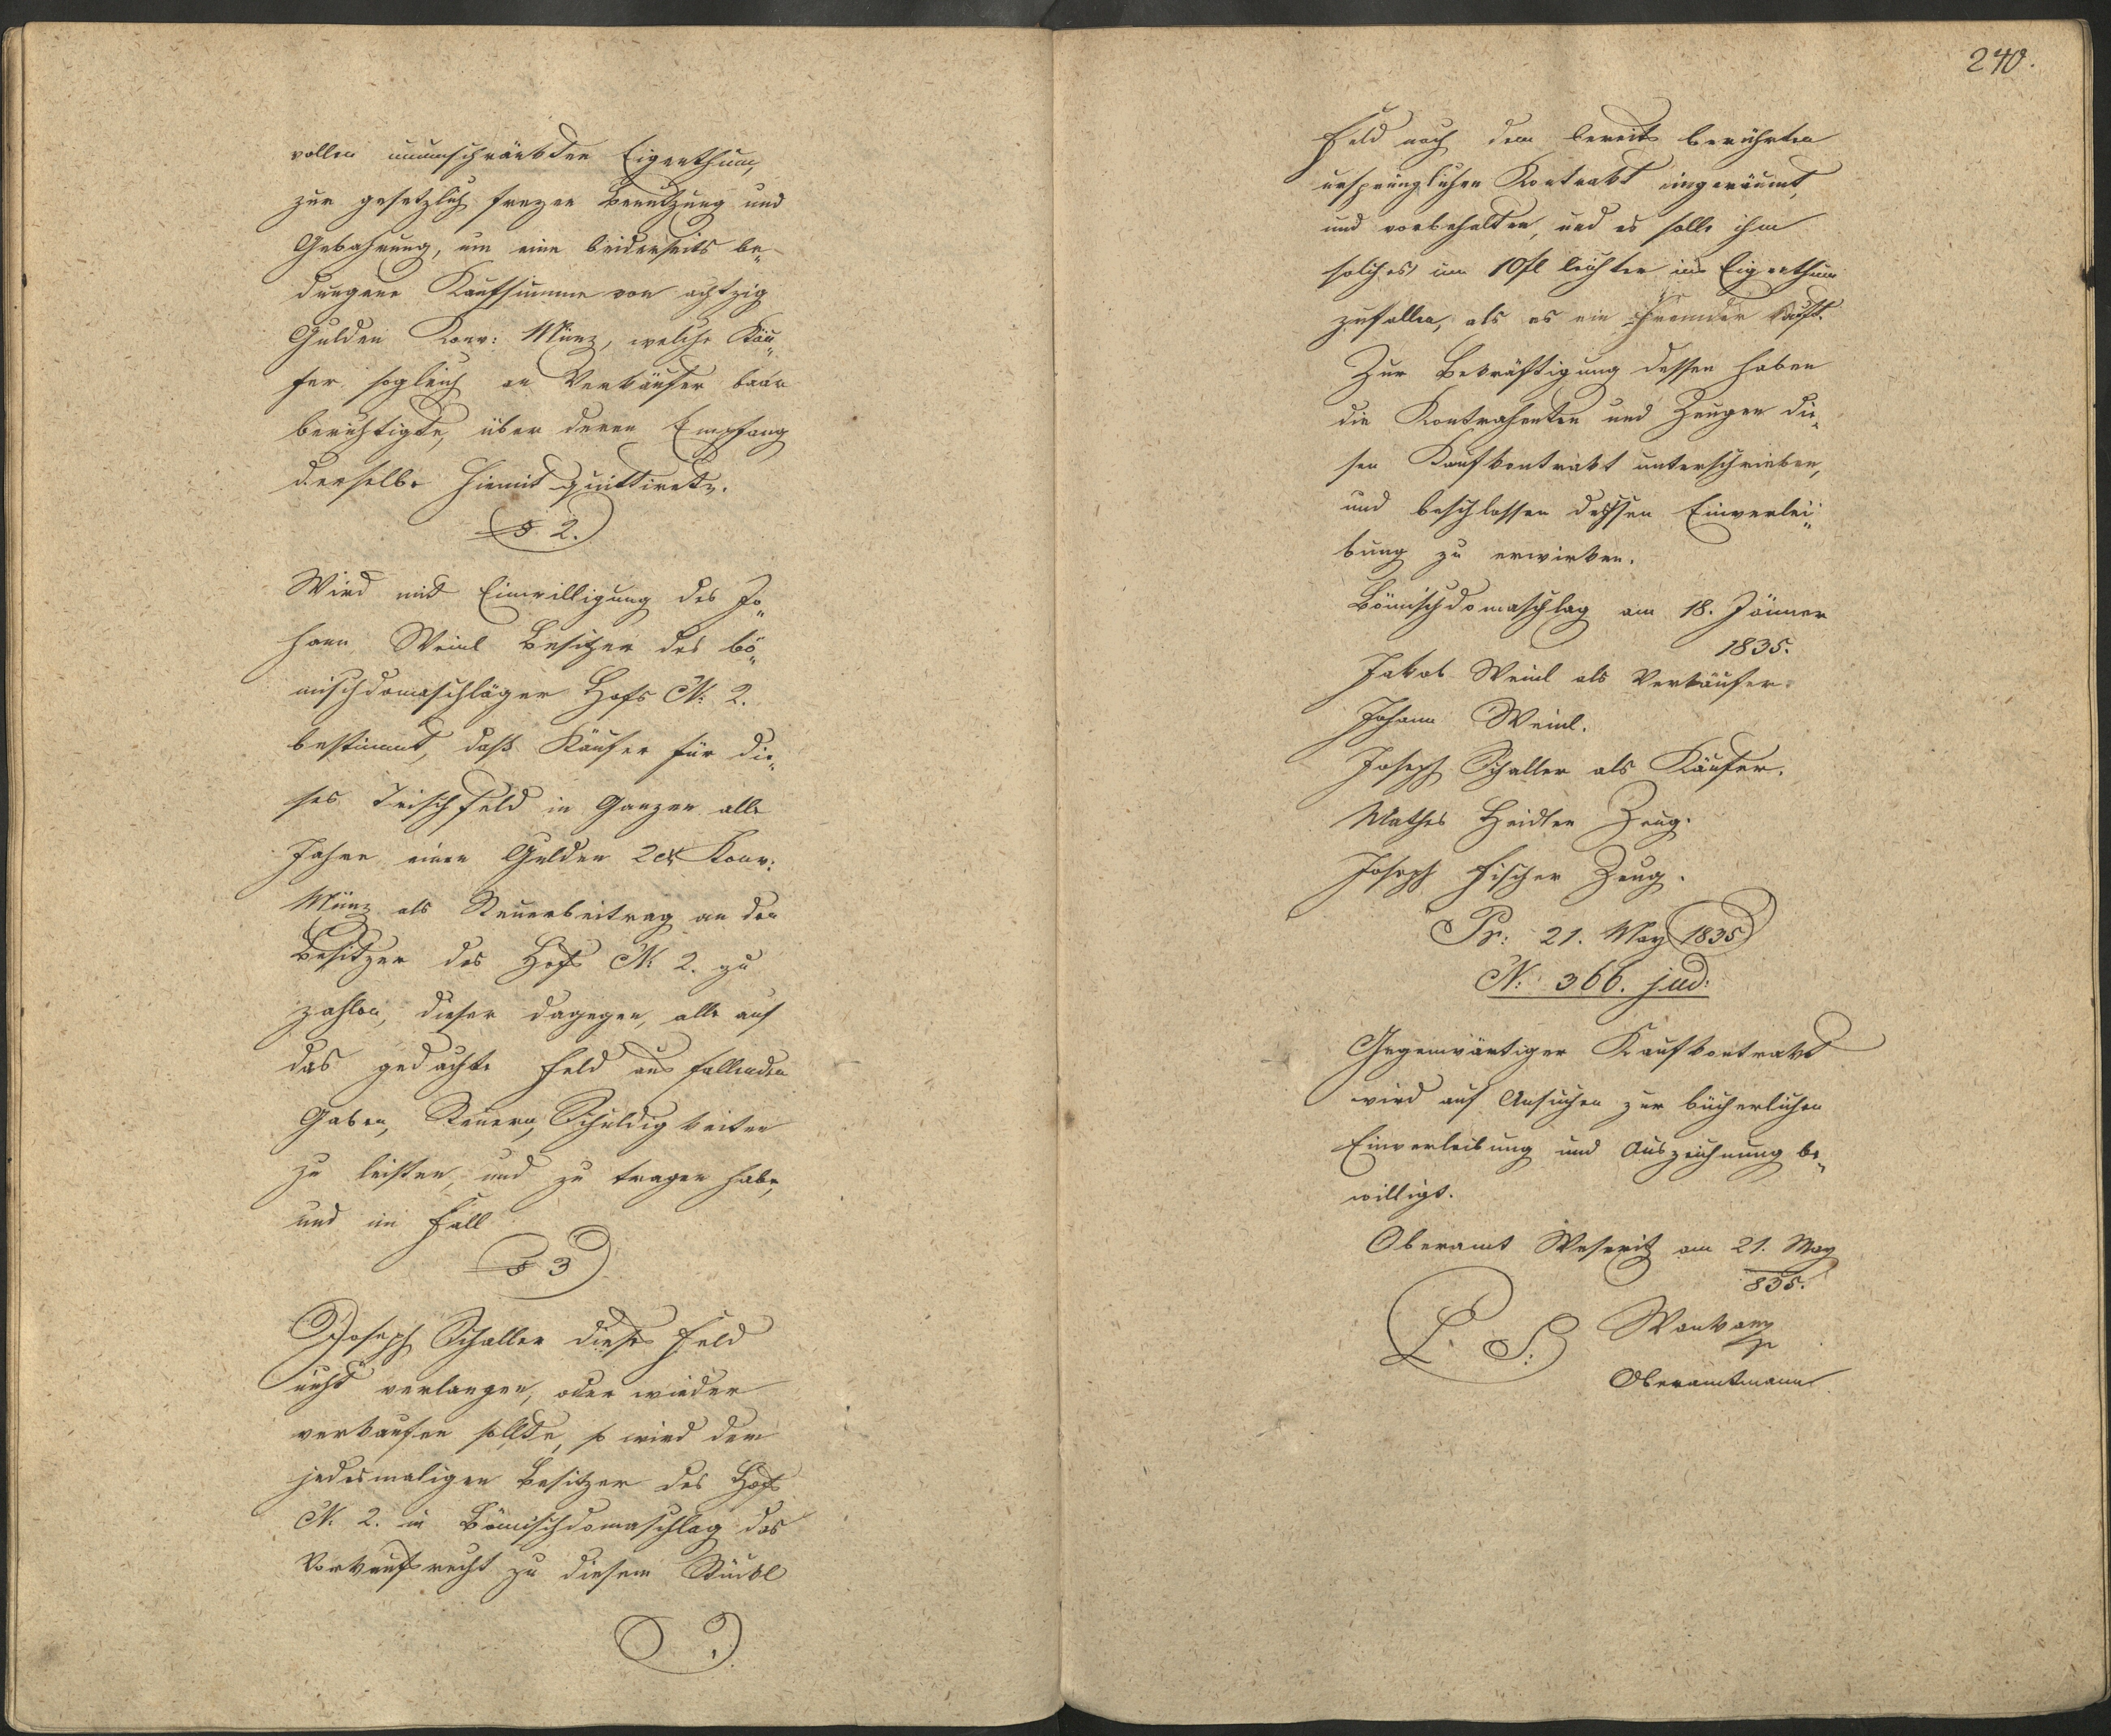 vollen unumschränkten Eigenthum,
zur gesetzlich freyen Benutzung und
Gebahrung, um eine beiderseits be„
dungene Kaufsumme von achtzig
Gulden Konv: Münz, welche Käu„
fer sogleich an Verkäufer baar
berichtigte, über deren Empfang
derselbe hiemit quittirete.
§ 2.
Wird mit Einwilligung des Jo„
hann Weinl Besitzer des bö„
mischdomaschläger Hofs N: 2.
bestimmt, daß Käufer für die„
ses Teischfeld in Ganzen alle
Jahre einen Gulden 2 xr Konv:
Münz als Steuerbeitrag an den
Besitzer des Hofs N: 2. zu
zahlen, dieser dagegen, alle auf
das gedachte Feld aus fallenden
Gaben, Steuern, Schuldigkeiten
zu leisten, und zu tragen habe,
und im Fall
§ 3
Joseph Schaller dieses Feld
nicht verlangen, oder wieder
verkaufen sollte, so wird dem
jedesmaligen Besitzer des Hofs
N. 2. in Bömischdomaschlag das
Vorkaufsrecht zu diesem Stückl
240.
Feld nach dem bereits berührten
ursprünglichen Kontrakt eingeräumt,
und vorbehalten, und es solle ihm
solches um 10 fl leichter ins Eigenthum
zufallen, als es ein Fremder kauft.
Zur Bekräftigung dessen haben
die Kontrahenten und Zeugen die„
sen Kaufkontrakt unterschrieben,
und beschlossen dessen Einverlei„
bung zu erwirken.
Bömischdomaschlag am 18. Jänner
1835.
Jakob Weinl als Verkäufer.
Johann Weinl.
Joseph Schaller als Käufer.
Mathes Heidler Zeug.
Joseph Fischer Zeug.
Pr: 21. May 1835
N: 366. jud:
Gegenwärtiger Kaufkontrakt
wird auf Ansuchen zur bücherlichen
Einverleibung und Auszeichnung be„
willigt.
Oberamt Weseritz am 21. May
835.
L. S.
Oberamtmann